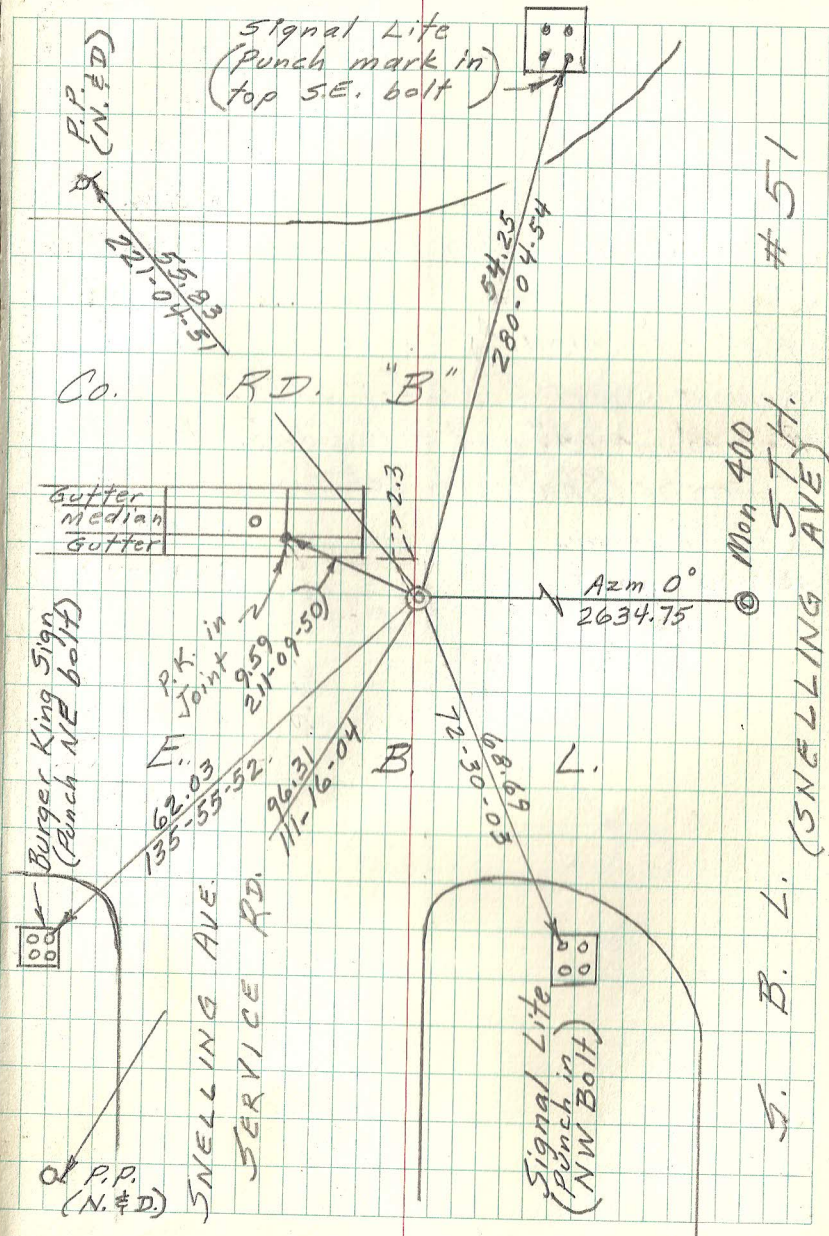 Signal Lite
(Punch mark in
top S.E. bolt)
P.P.
(N. & D)
55.83
221-04-51
54.25
280-04-54
# 51
Co. RD. "B"
2.3
Gutter
median
Gutter
Mon 400
S. T. H.
(SNELLING AVE)
Azm 0°
2634.75
P.K. in
Joint
9.59
211-09-50
Burger King Sign
(Punch NE bolt)
E. B. L.
62.03
135-55-52
96.31
111-16-04
68.69
72-30-03
SNELLING AVE.
SERVICE RD.
Signal Lite
(Punch in
NW Bolt)
S. B. L.
P.P.
(N. & D.)